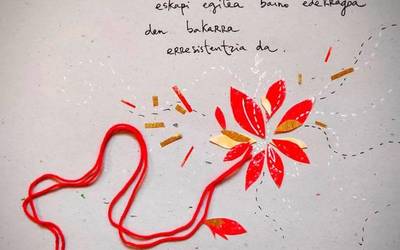 eskapi egitea baino ederragoa
den bakarra
erresistentzia da.